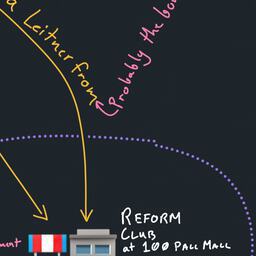 a Leitner from
Probably the
REFORM
CLUB
at 100 PALL MALL